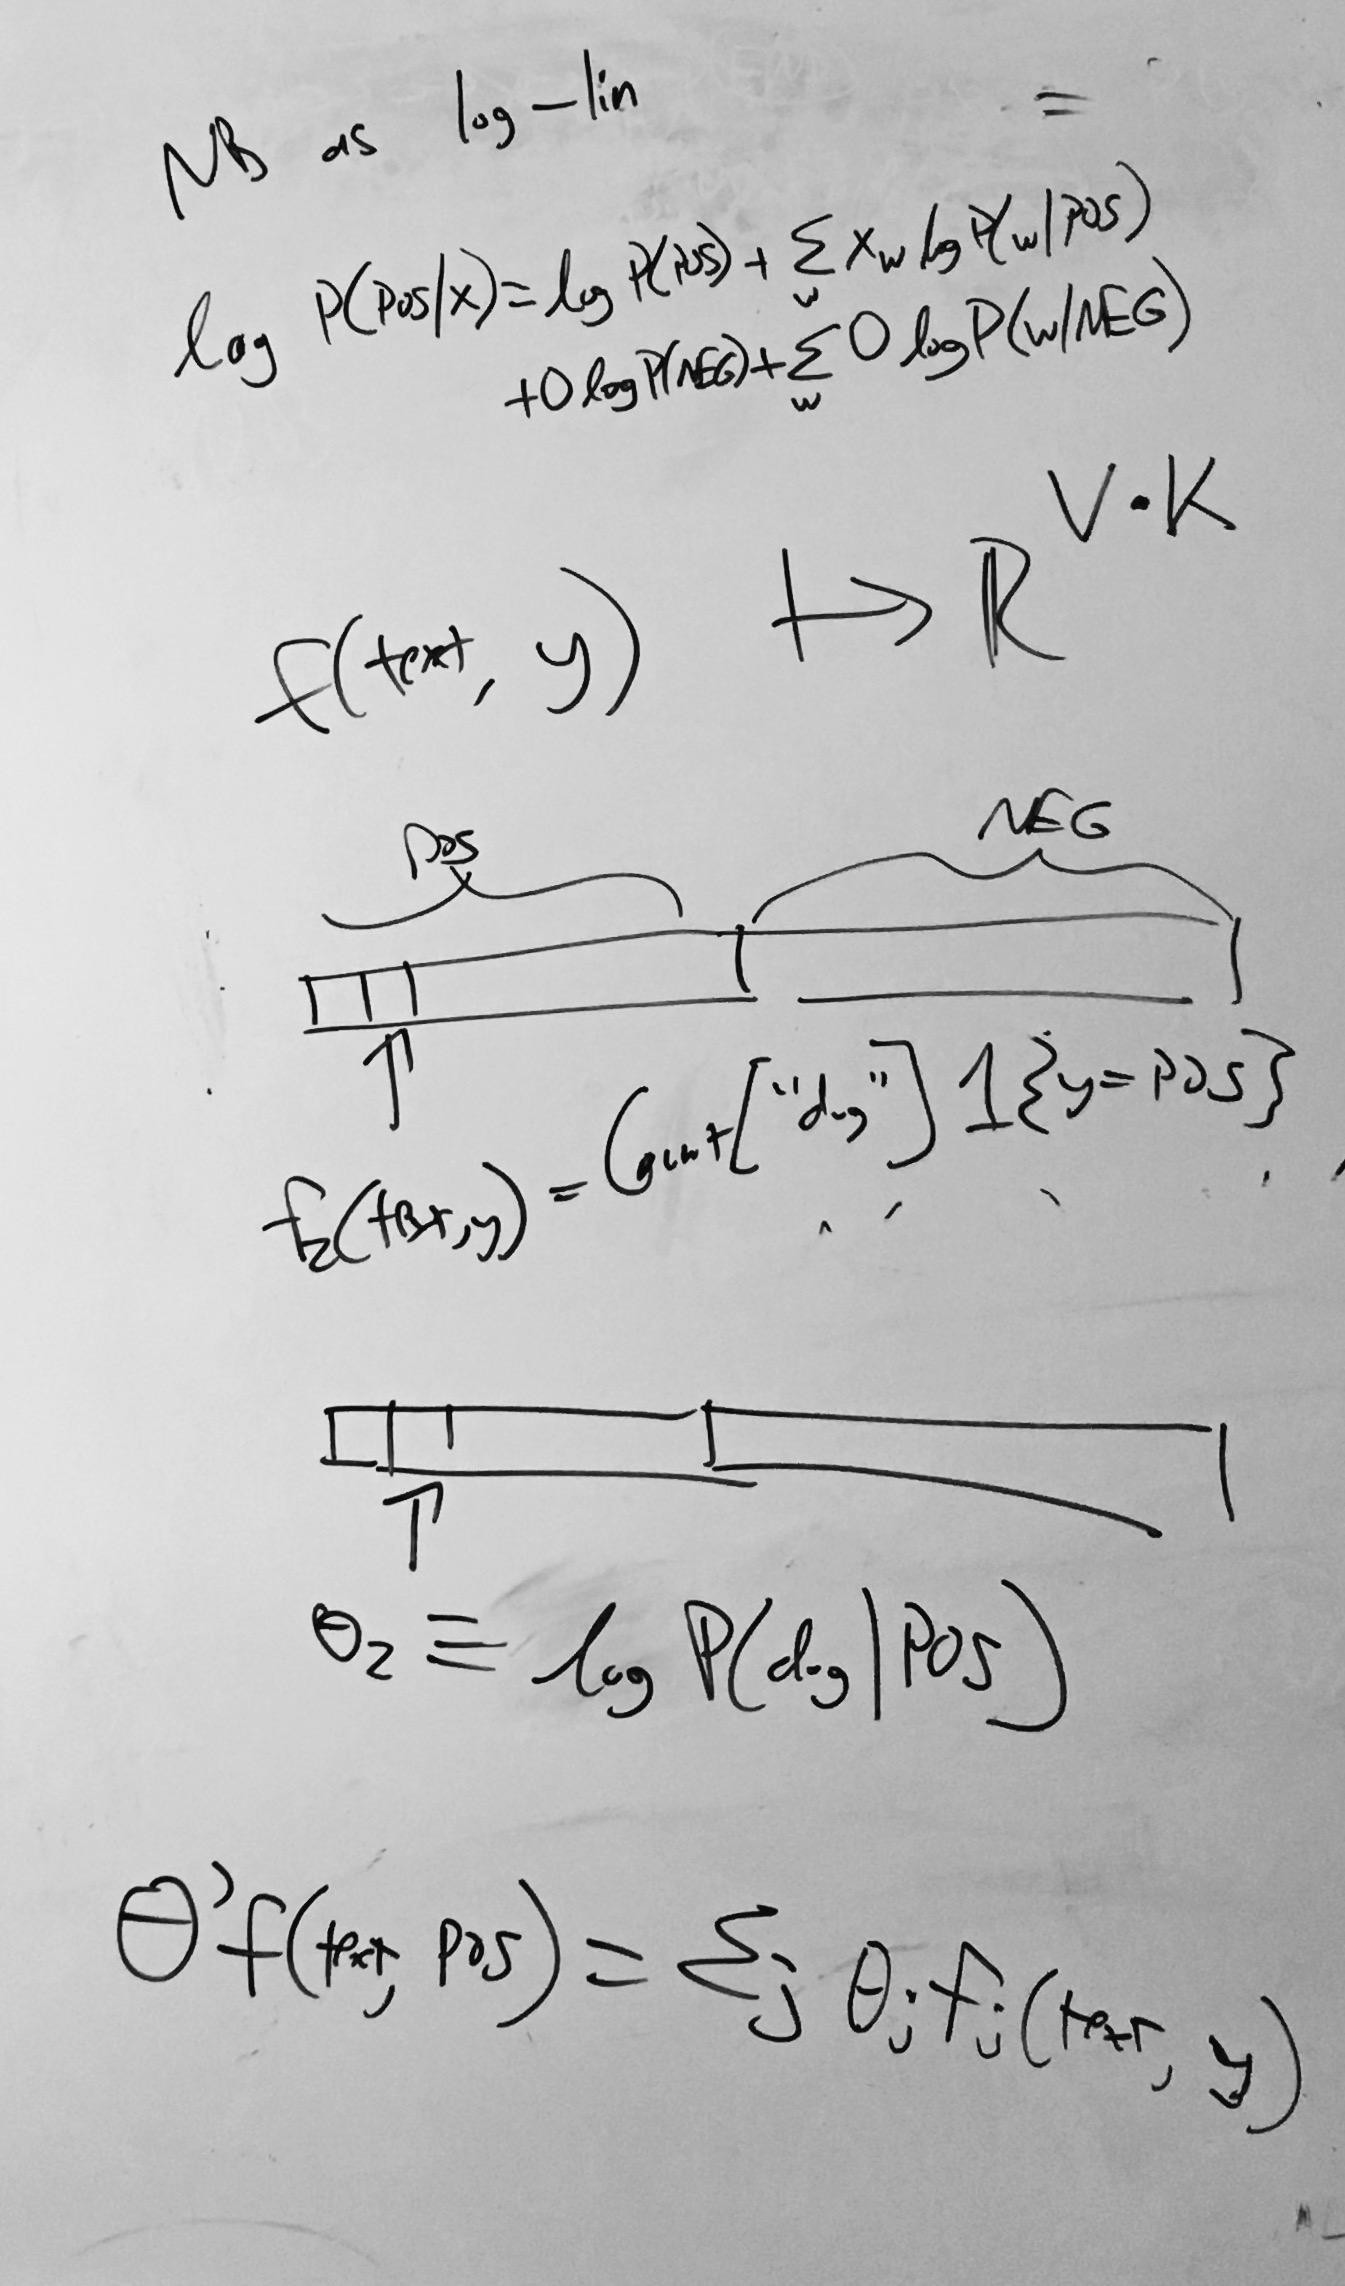 NB as log-lin =
log P(POS|x) = log P(POS) + Σ_w x_w log P(w|POS)
+ 0 log P(NEG) + Σ_w 0 log P(w|NEG)
f(text, y) ↦ ℝ^{V·K}
POS NEG
↑
f₂(text, y) = Count["dog"] 1{y=POS}
↑
θ₂ ≡ log P(dog|POS)
θ'f(text, POS) = Σ_j θ_j f_j(text, y)